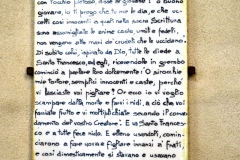 con l'occhio pietoso, disse al giovane: O buono
giovane, io ti priego che tu me le dia, e che uc-
celli così innocenti a' quali nella santa Scrittura
sono assomigliate le anime caste, umili e fedeli,
non vengano alle mani de' crudeli che le uccidano.
Di subito colui, ispirato da Dio, tutte le diede a
Santo Francesco, ed egli, ricevendole in grembo
cominciò a parlare loro dolcemente: O sirocchie
mie tortore, semplici innocenti e caste, perchè
vi lasciate voi pigliare? Or ecco io vi voglio
scampare dalla morte e farvi i nidi, a ciò che voi
facciate frutto e vi moltiplichiate secondo il coman-
damento del vostro Creatore. E va Santo Francesco
e a tutte fece nido. E elleno usandoli, comin-
ciarono a fare uova e figliare innanzi ai frati,
e così dimesticamente si stavano e usavano